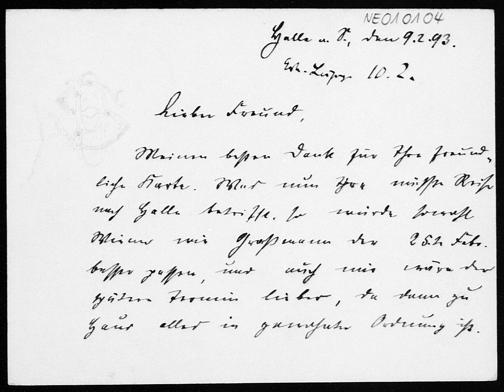 NE010104
Halle a. S., den 9.2.93.
10. 2.
Lieber Freund,
Meinen besten Dank für Ihre freund-
liche Karte. Was nun Ihre nächste Reise
nach Halle betrifft, so würde sowohl
Wiener wie Graßmann der 25te Febr.
besser passen, und auch mir wäre der
spätere Termin lieber, da dann zu
Haus alles in gewohnter Ordnung ist.